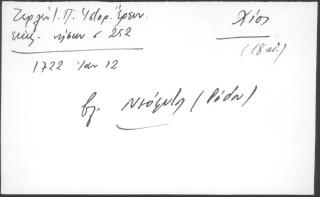 Ζερλέντ. Π. Ιστορ. Έρευν.
εκκλ. νήσων σ 252
Χίος
(18 αι.)
1722 Ιαν 12
βλ. Νεόφυτος (Ρόδου)